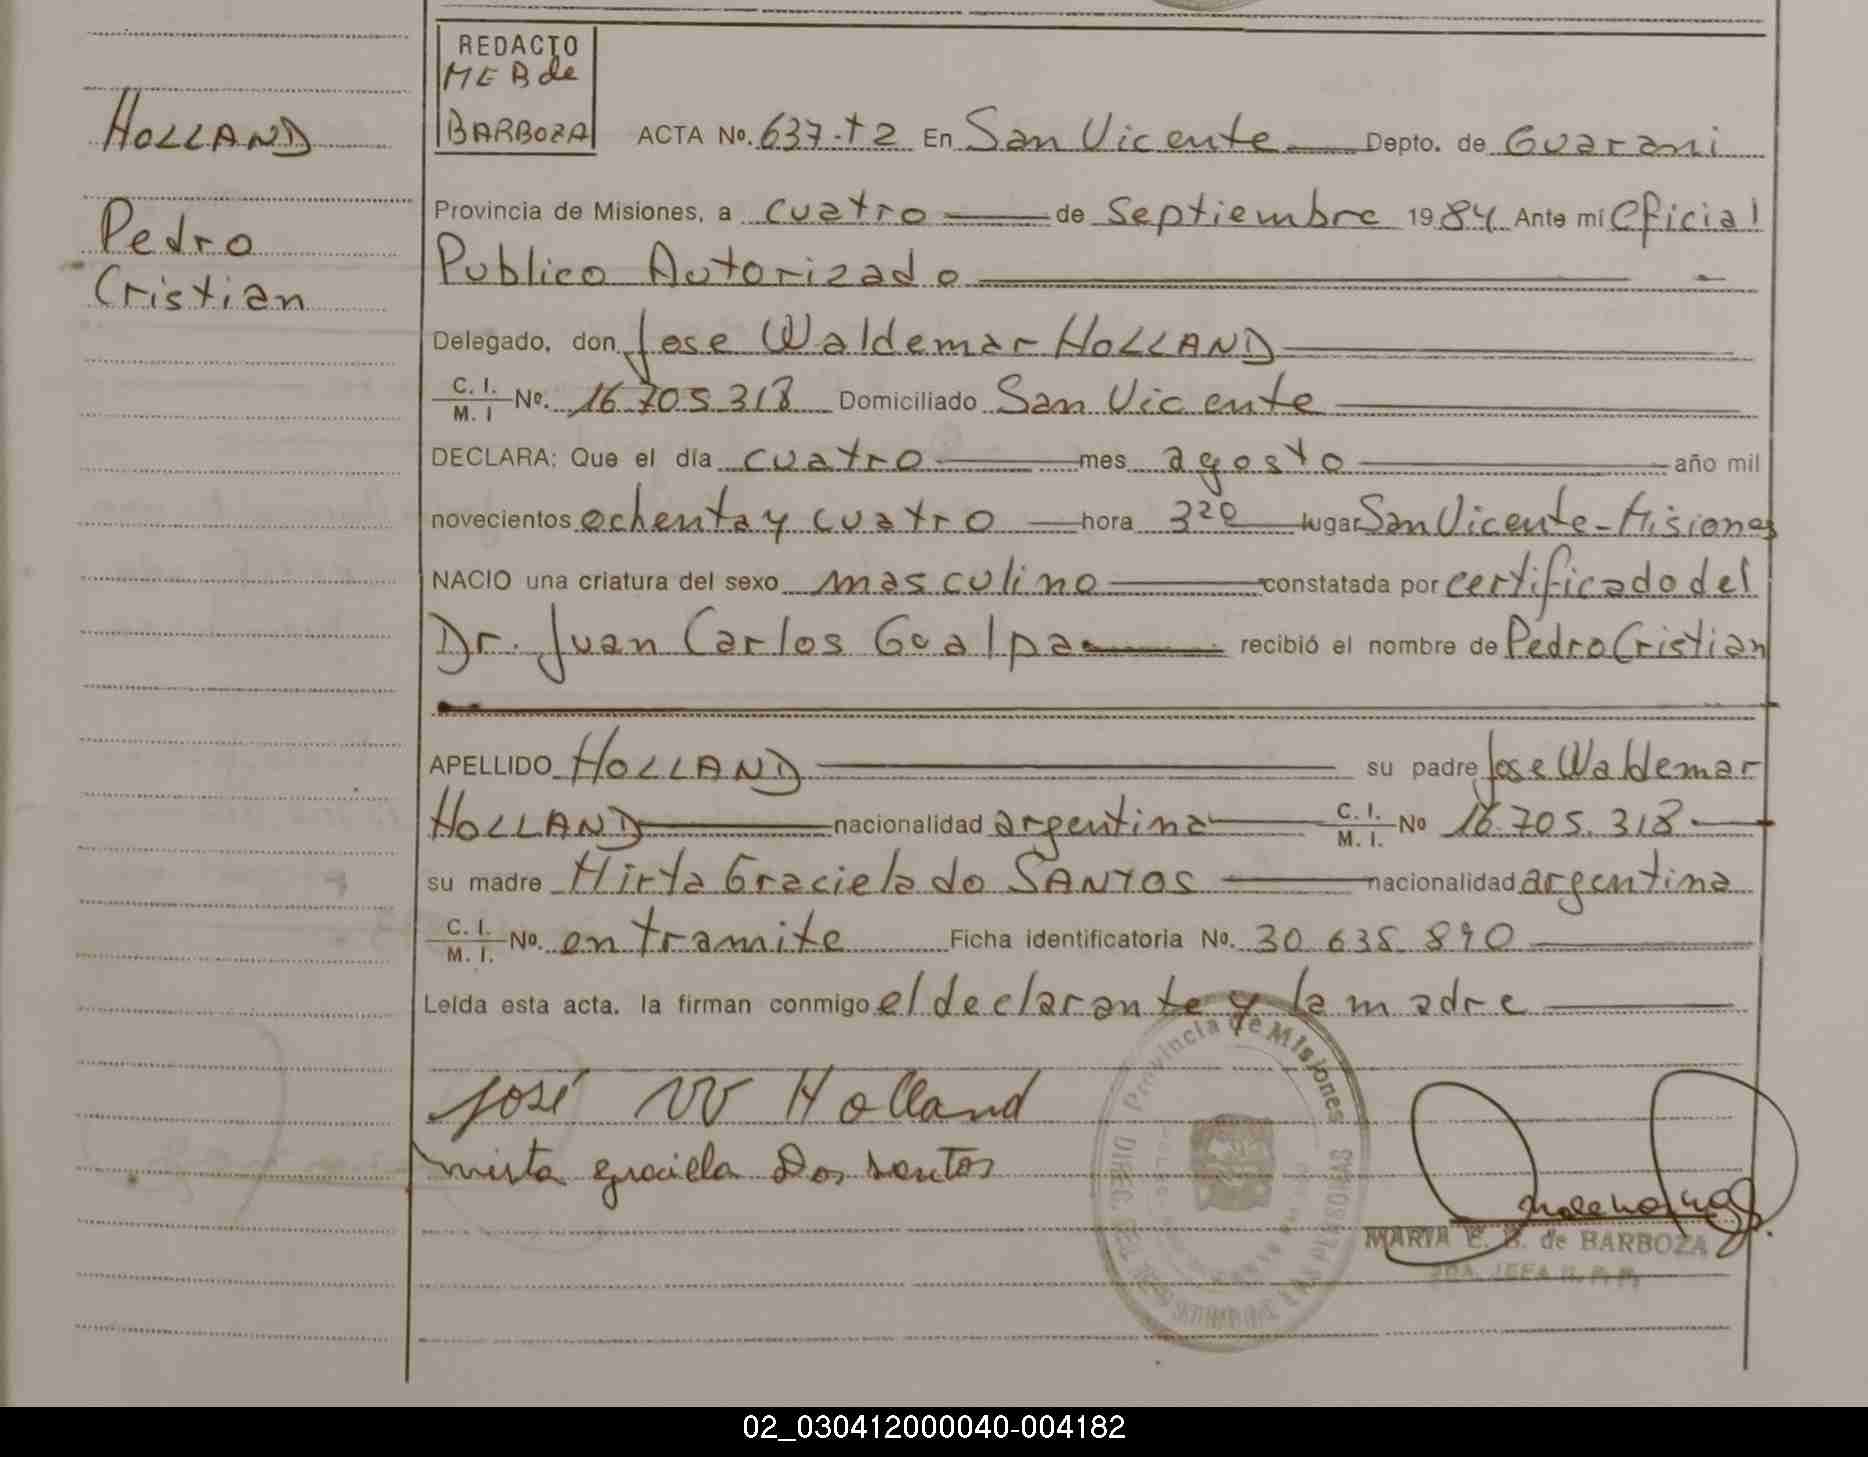 REDACTO
MEB de
BARBOZA
HOLLAND
Pedro
Cristian
ACTA Nº. 637-T2 En San Vicente Depto. de Guarani
Provincia de Misiones, a cuatro de Septiembre 1984 Ante mí Oficial
Publico Autorizado
Delegado, don Jose Waldemar HOLLAND
C. I. / M. I Nº. 16.705.318 Domiciliado San Vicente
DECLARA: Que el día cuatro mes agosto año mil
novecientos ochenta y cuatro hora 3 20 lugar San Vicente - Misiones
NACIO una criatura del sexo masculino constatada por certificado del
Dr. Juan Carlos Gualpa recibió el nombre de Pedro Cristian
APELLIDO HOLLAND su padre Jose Waldemar
HOLLAND nacionalidad argentina C. I. / M. I. Nº 16.705.318
su madre Mirta Graciela do SANTOS nacionalidad argentina
C. I. / M. I. Nº. en tramite Ficha identificatoria No. 30 635 890
Leída esta acta, la firman conmigo el declarante y la madre
José W Holland
mirta graciela Dos santos
Provincia de Misiones
DE LAS PERSONAS
MARTA E. B. de BARBOZA
2DA. JEFA
02_030412000040-004182